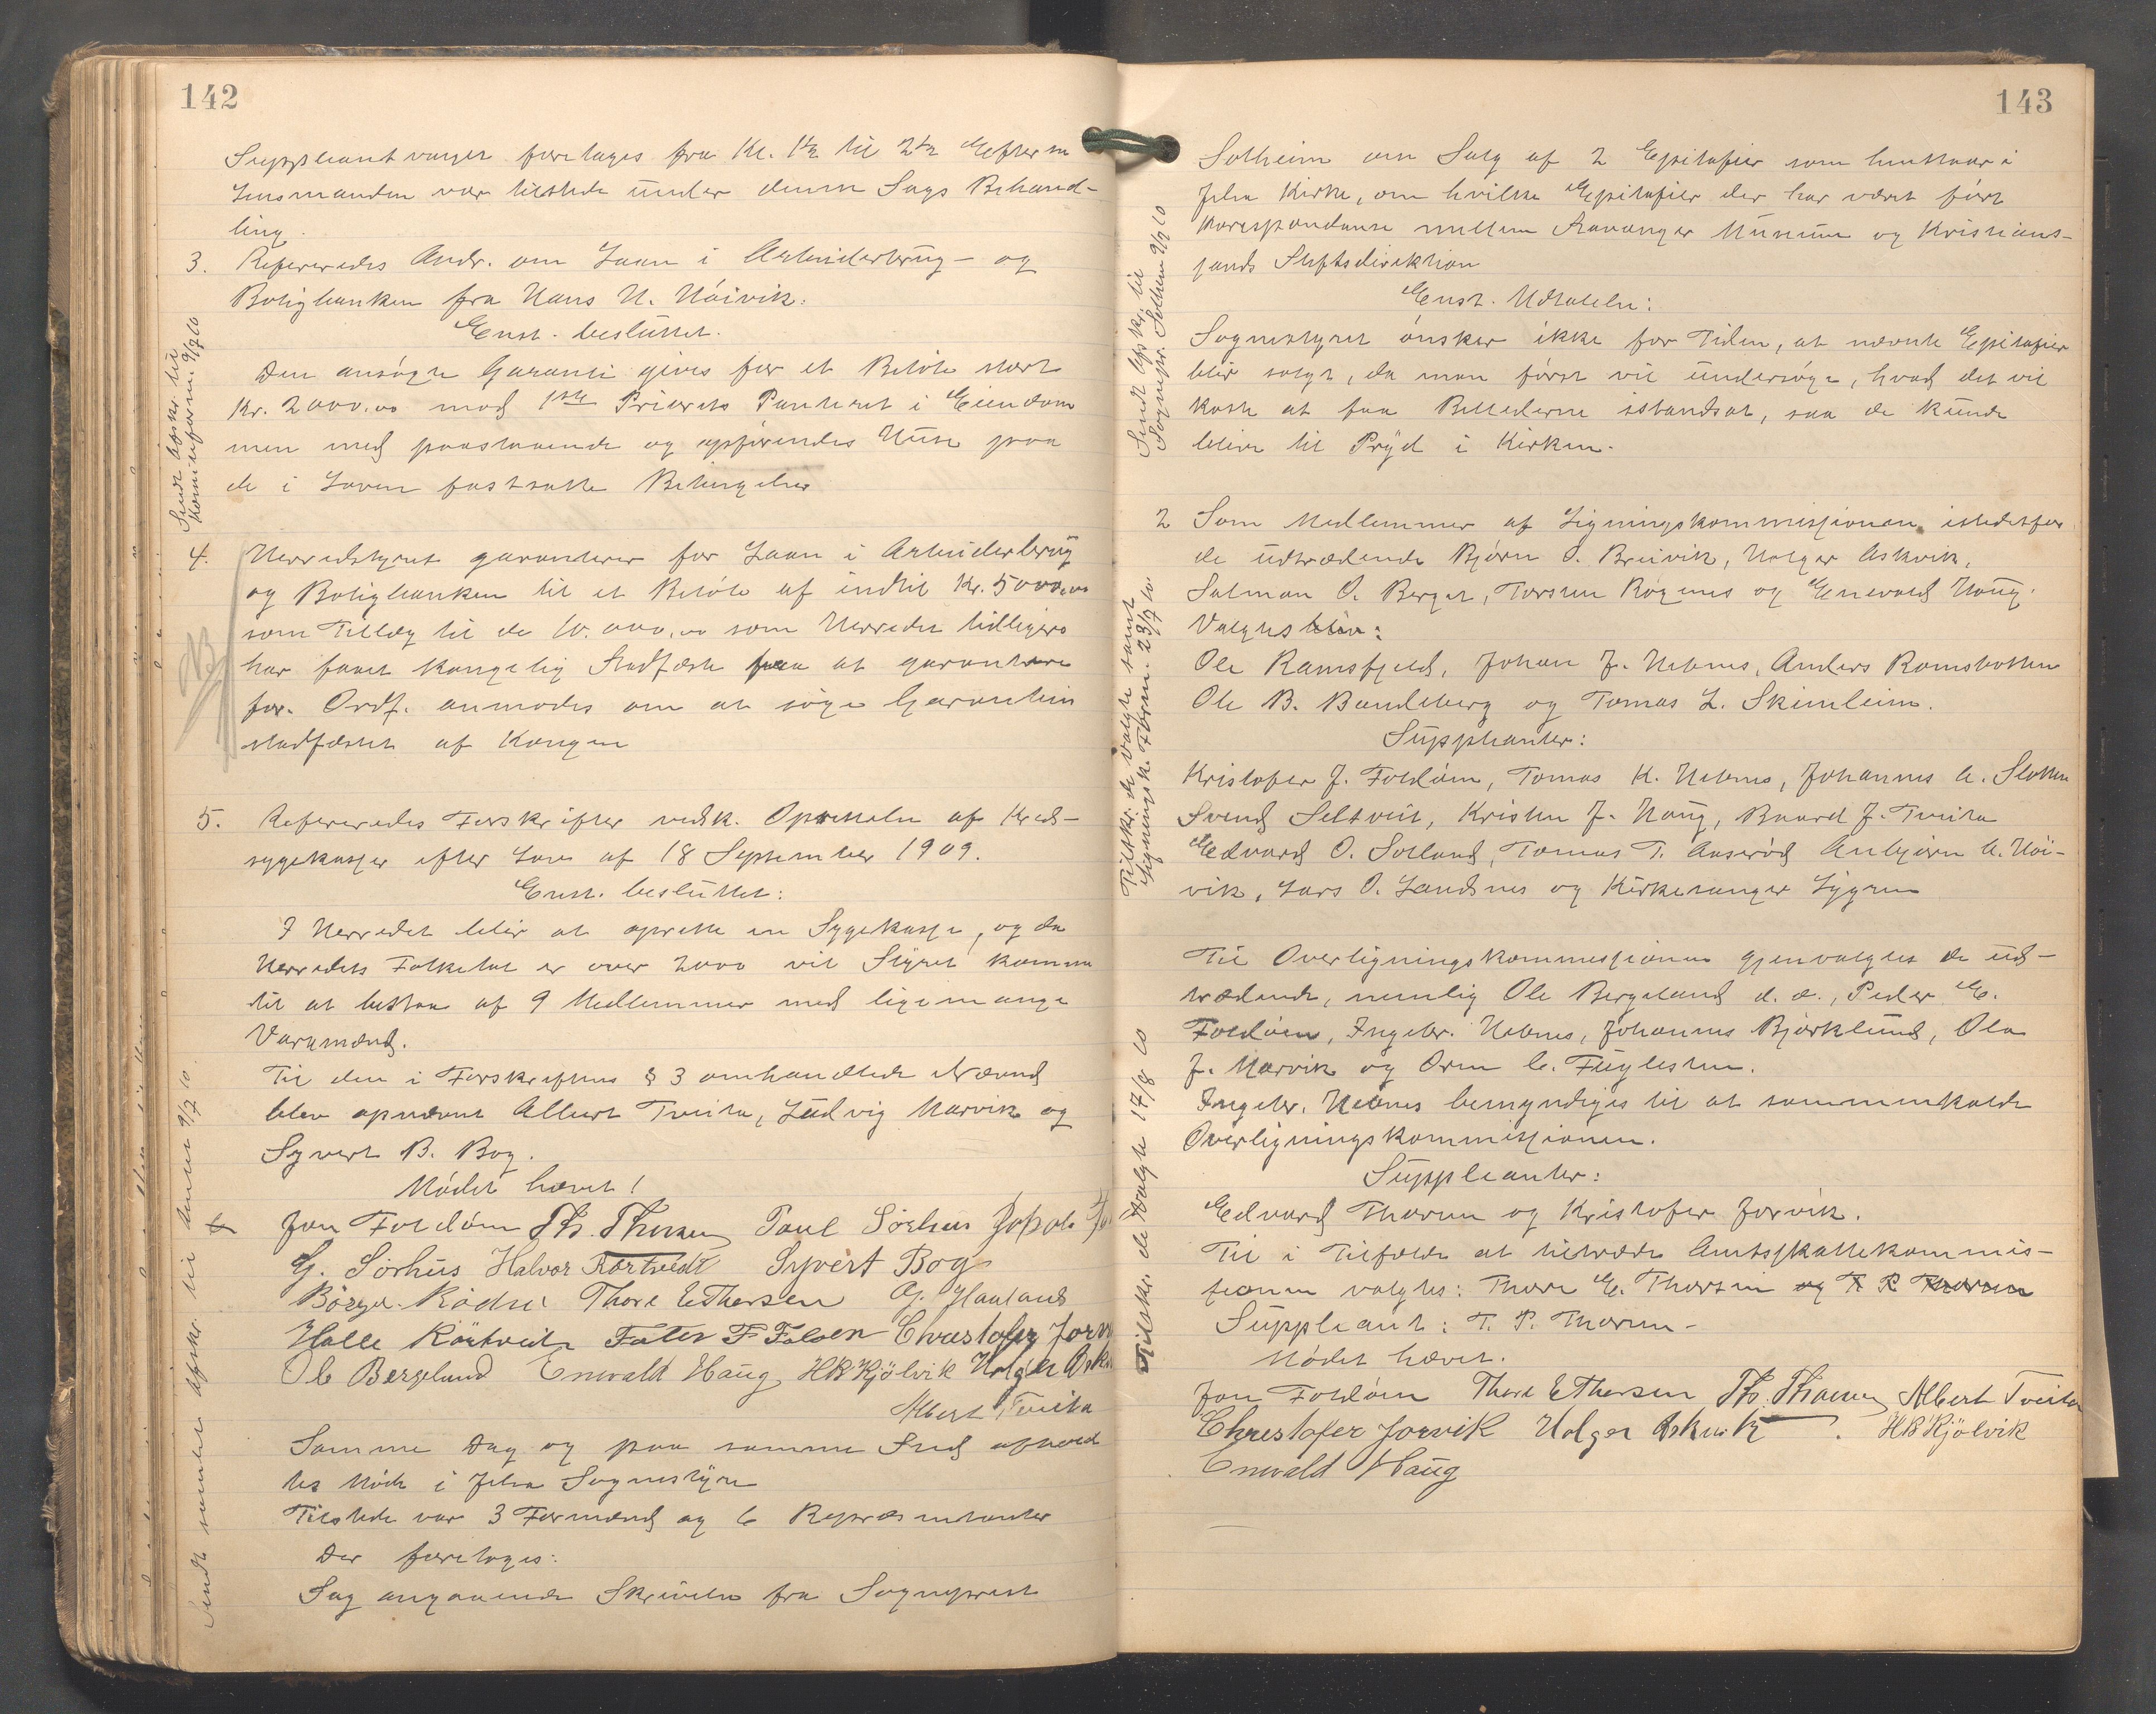 142
Suppleantvalget foretages fra Kl. 1½ til 2½ Efterm
Lensmanden var tilstede under denne Sags Behand-
ling.
3. Refereredes Andr. om Laan i Arbeiderbrug- og
Boligbanken fra Hans H. Höivik.
Enst. besluttet.
Den ansögte Garanti gives for et Belöb stort
Kr. 2000,00 mod 1ste Prioritets Panteret i Eiendom
men med paastaaende og opförendes Huse paa
de i Loven fastsatte Betingelser
Sendt Afskr. til
Kommuneform. 9/7 10
4. Herredstyret garanterer for Laan i Arbeiderbrug
og Boligbanken til et Belöb af indtil Kr. 5000,00
som Tillæg til de 10.000,00 som Herredet tidligere
har faaet kongelig Stadfæste paa at garantere
for. Ordf. anmodes om at söge Garantien
stadfæstet af Kongen
NB
5. Refereredes Forskrifter vedk. Oprettelse af Kreds-
sygekasser efter Lov af 18 September 1909.
Enst. besluttet:
I Herredet blir at oprette en Sygekasse, og da
Herredets Folketal er over 2000 vil Styret komme
til at bestaa af 9 Medlemmer med ligemange
Varamænd.
Til den i Forskriftens § 3 omhandlede Nævnd
blev opnævnt Albert Tveita, Ludvig Marvik og
Syvert B. Bog.
Mödet hævet!
Jon Foldöen Th. Thorsen Paul Sörhus Jakob
G. Sörhus Halvor Körtvedt Syvert Bog
Börge Rödne Thore E Thorsen G. Hauland
Halle Körtveit Peter F Foloen Christofer Jorv
Ole Bergeland Enevald Haug HB Kjölvik Holger Askv
Albert Tveita
Sendt samtlet Afskr. til Amtet 9/7 10
Samme Dag og paa samme Sted afhold
tes Möde i Jelsa Sognestyre
Tilstede var 3 Formænd og 6 Repræsentanter
Der foretoges:
Sag angaaende Skrivelse fra Sogneprest
143
Solheim om Salg af 2 Epitafier som henstaar i
Jelsa Kirke, om hvilke Epitafier der har været fört
Korespondanse mellem Stavanger Museum og Kristians-
sands Stiftsdirektion
Enst. Udtalelse:
Sognestyret önsker ikke for Tiden, at nævnte Epitafier
blir solgt, da man först vil undersöge, hvad det vil
koste at faa Billederne istandsat, saa de kunde
blive til Pryd i Kirken.
Sendt Afskr. til
Sognepr. Solheim 9/7 10
2 Som Medlemmer af Ligningskommissionen istedetfor
de udtrædende Björn O. Breivik, Holger Askvik,
Salmon O. Berget, Torsten Rögenes og Enevald Haug.
Valgtes blev:
Ole Ramsfjeld, Johan J. Hebnes, Anders Ramsbotten
Ole B. Bandeberg og Tomas L. Skimleim.
Suppleanter:
Kristofer J. Foldöen, Tomas K. Hebnes, Johannes A. Slotten
Svend Seltveit, Kristen J. Haug, Baard J. Tveita
Edvard O. Solland, Tomas T. Anseröd Anbjörn A. Höi-
vik, Lars O. Landsnes og Kirkesanger Lygren
Tilskr. de Valgte samt
Ligningsk. Form. 23/7 10
Til Overligningskommissionen gjenvalgtes de ud-
trædende, nemlig Ole Bergeland d. æ., Peder E.
Foldöen, Ingebr. Hebnes, Johannes Björklund, Ola
J. Marvik og Orm C. Fuglesten.
Ingebr. Hebnes bemyndiges til at sammenkalde
Overligningskommissionen.
Suppleanter:
Edvard Thorsen og Kristofer Jorvik.
Til i Tilfælde at tiltræde Amtsskattekommis-
sionen valgtes: Thore E. Thorsen og T P Thorsen
Suppleant: T. P. Thorsen-
Mödet hævet.
Tilskr. de Valgte 17/8 10
Jon Foldöen Thore E Thorsen Th. Thorsen Albert Tveita
Christofer Jorvik Holger Askvik HB Kjölvik
Enevald Haug